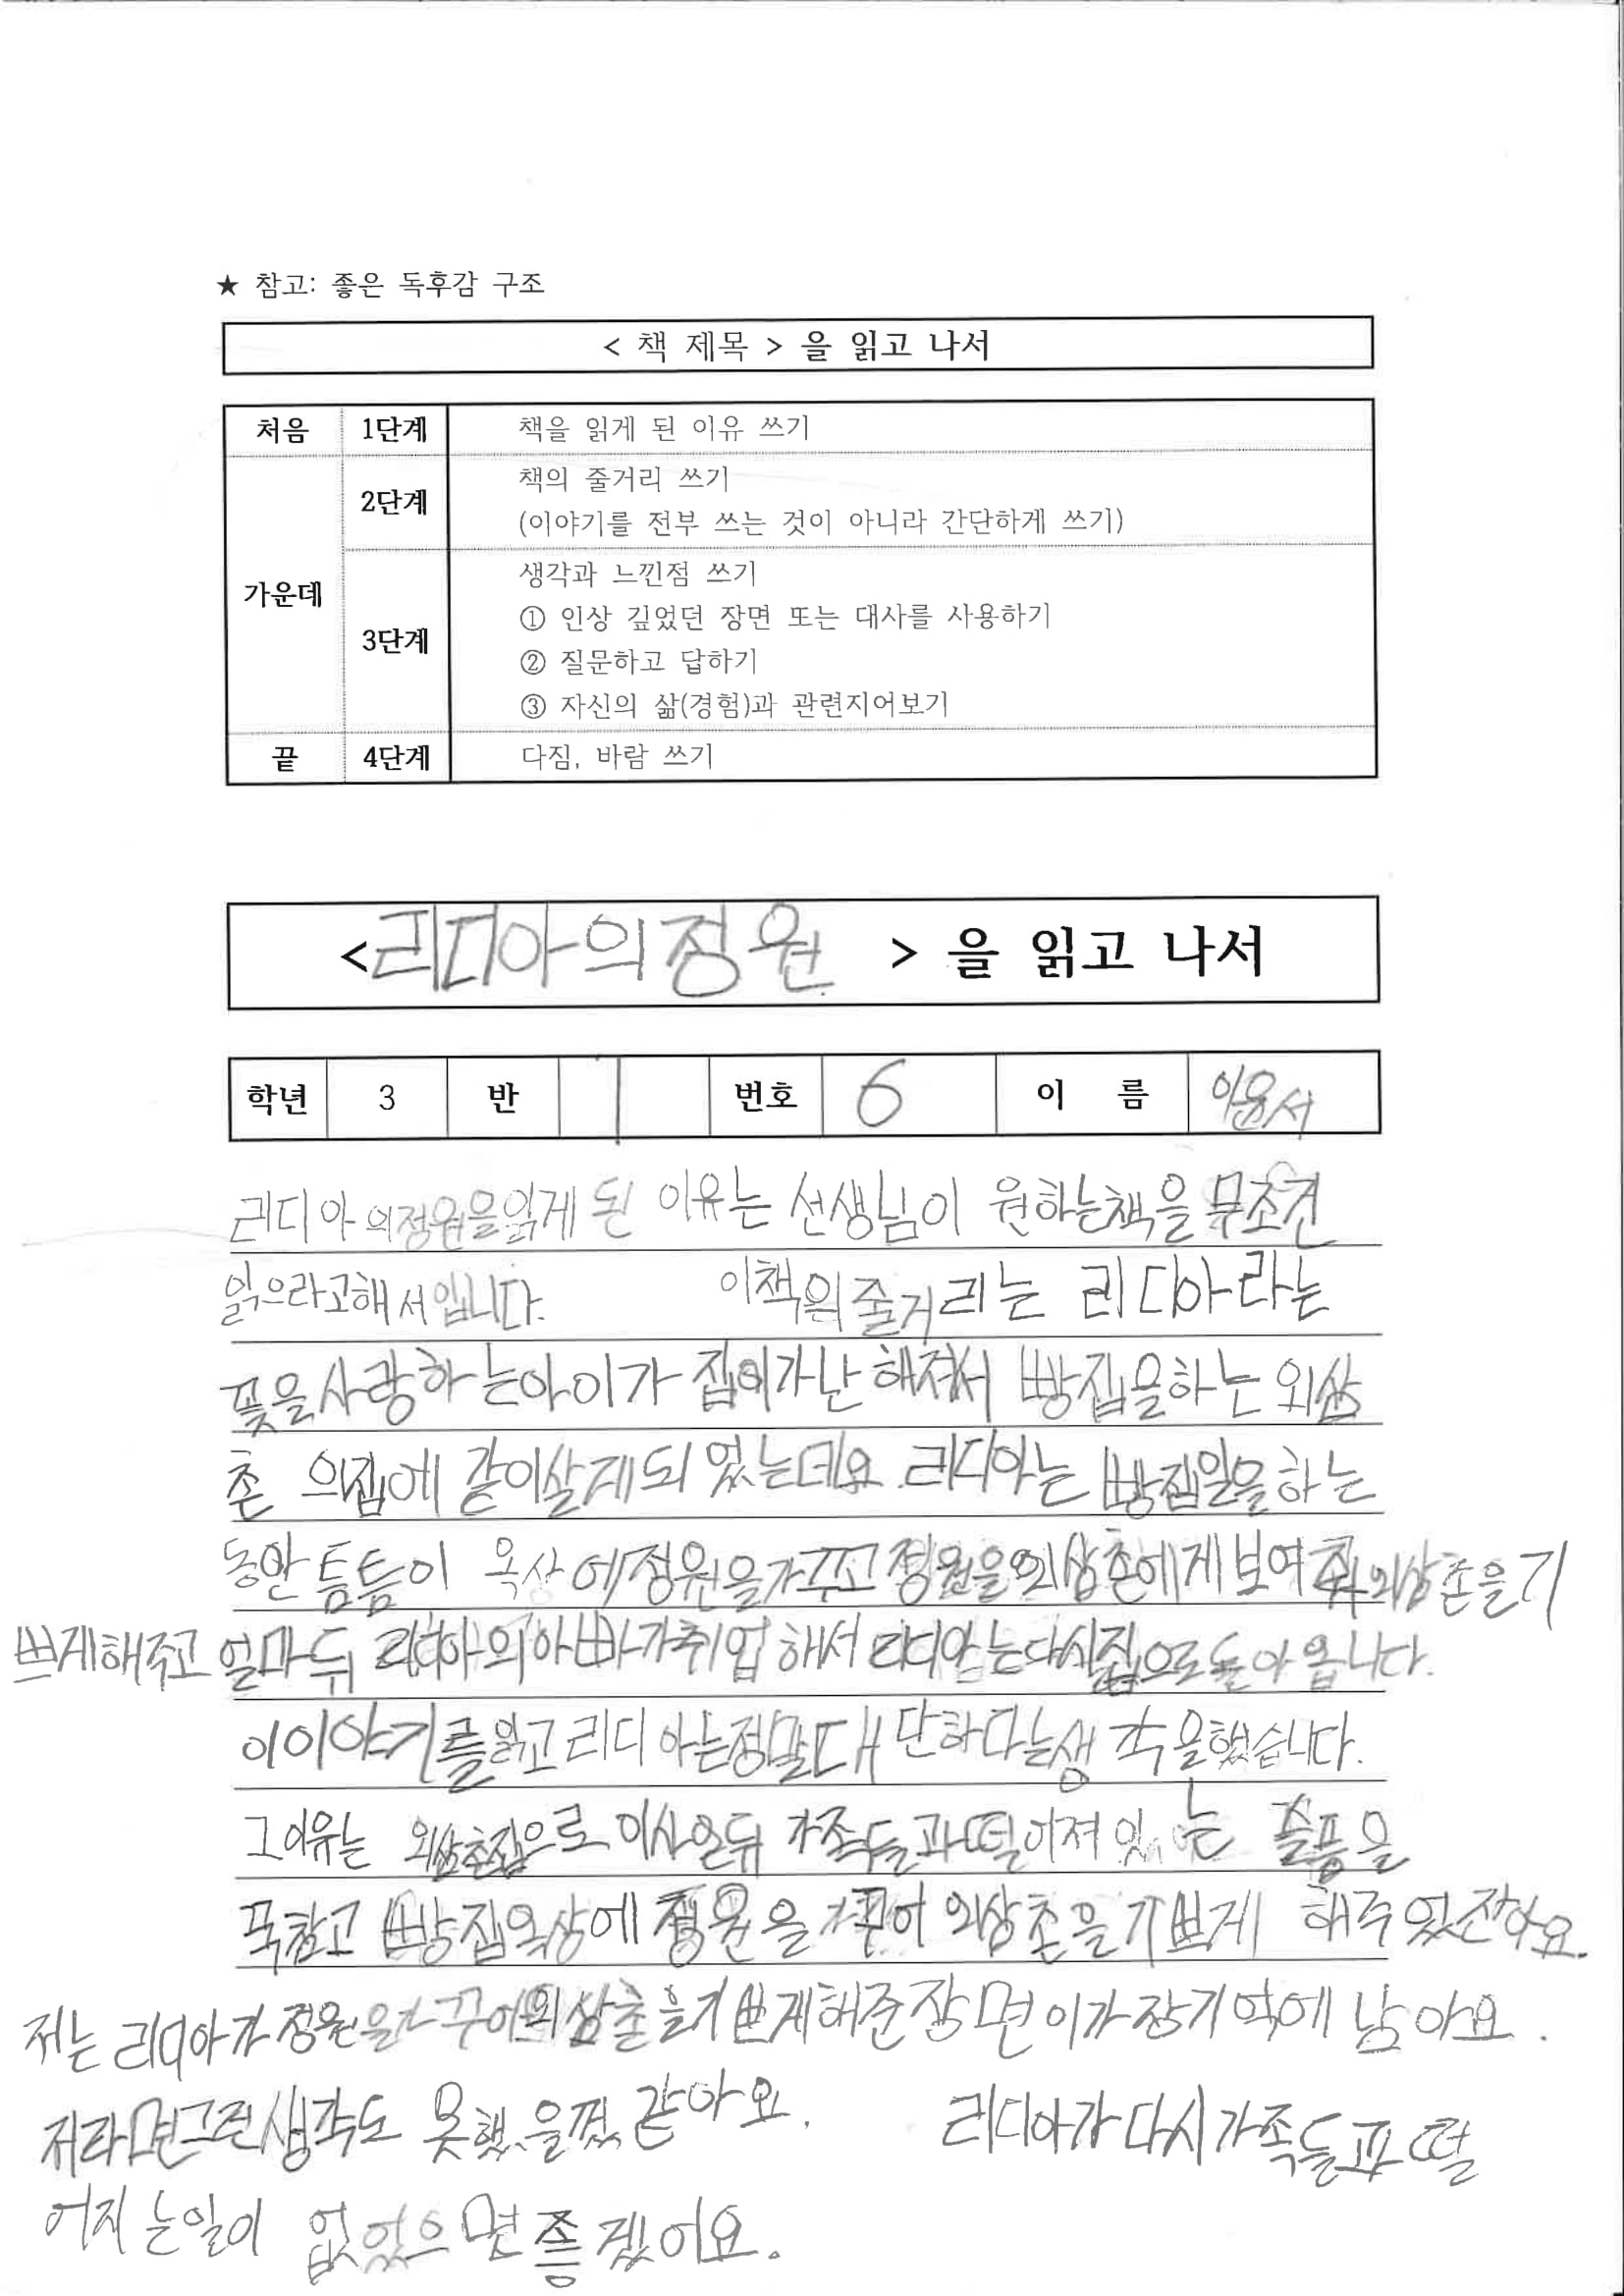 ★ 참고: 좋은 독후감 구조
< 책 제목 > 을 읽고 나서
처음 1단계 책을 읽게 된 이유 쓰기
가운데 2단계 책의 줄거리 쓰기
(이야기를 전부 쓰는 것이 아니라 간단하게 쓰기)
3단계 생각과 느낀점 쓰기
① 인상 깊었던 장면 또는 대사를 사용하기
② 질문하고 답하기
③ 자신의 삶(경험)과 관련지어보기
끝 4단계 다짐, 바람 쓰기
<리디아의정원> 을 읽고 나서
학년 3 반 1 번호 6 이 름 이윤서
리디아의정원을읽게 된 이유는 선생님이 원하는책을 무조건
읽으라고해서입니다. 이책의줄거리는 리디아라는
꽃을사랑하는아이가 집이가난해져서 빵집을하는 외삼
촌 의집에 같이살게되었는데요 리디아는 빵집일을하는
동안 틈틈이 옥상에정원을가꾸고 정원을외삼촌에게보여줘 외삼촌을기
쁘게해주고 얼마뒤 리디아의아빠가취업해서 리디아는다시집으로돌아옵니다.
이이야기를읽고리디아는정말대단하다는생각을했습니다.
그이유는 외삼촌집으로 이사온뒤 가족들과떨어져있는 슬픔을
꾹참고 빵집옥상에 정원을 가꾸어 외삼촌을기쁘게 해주었잖아요.
저는 리디아가 정원을가꾸어외삼촌을기쁘게해준장면이가장기억에 남아요.
저라면그런생각도 못했을껐같아요. 리디아가다시가족들과떨
어지는일이 없었으면좋겠어요.